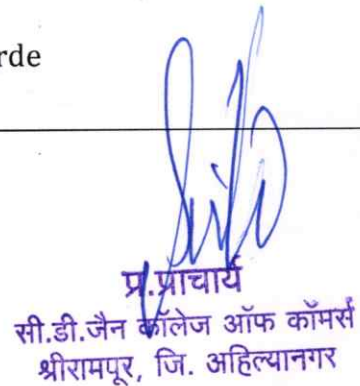 rde
प्र.प्राचार्य
सी.डी.जैन कॉलेज ऑफ कॉमर्स
श्रीरामपूर, जि. अहिल्यानगर